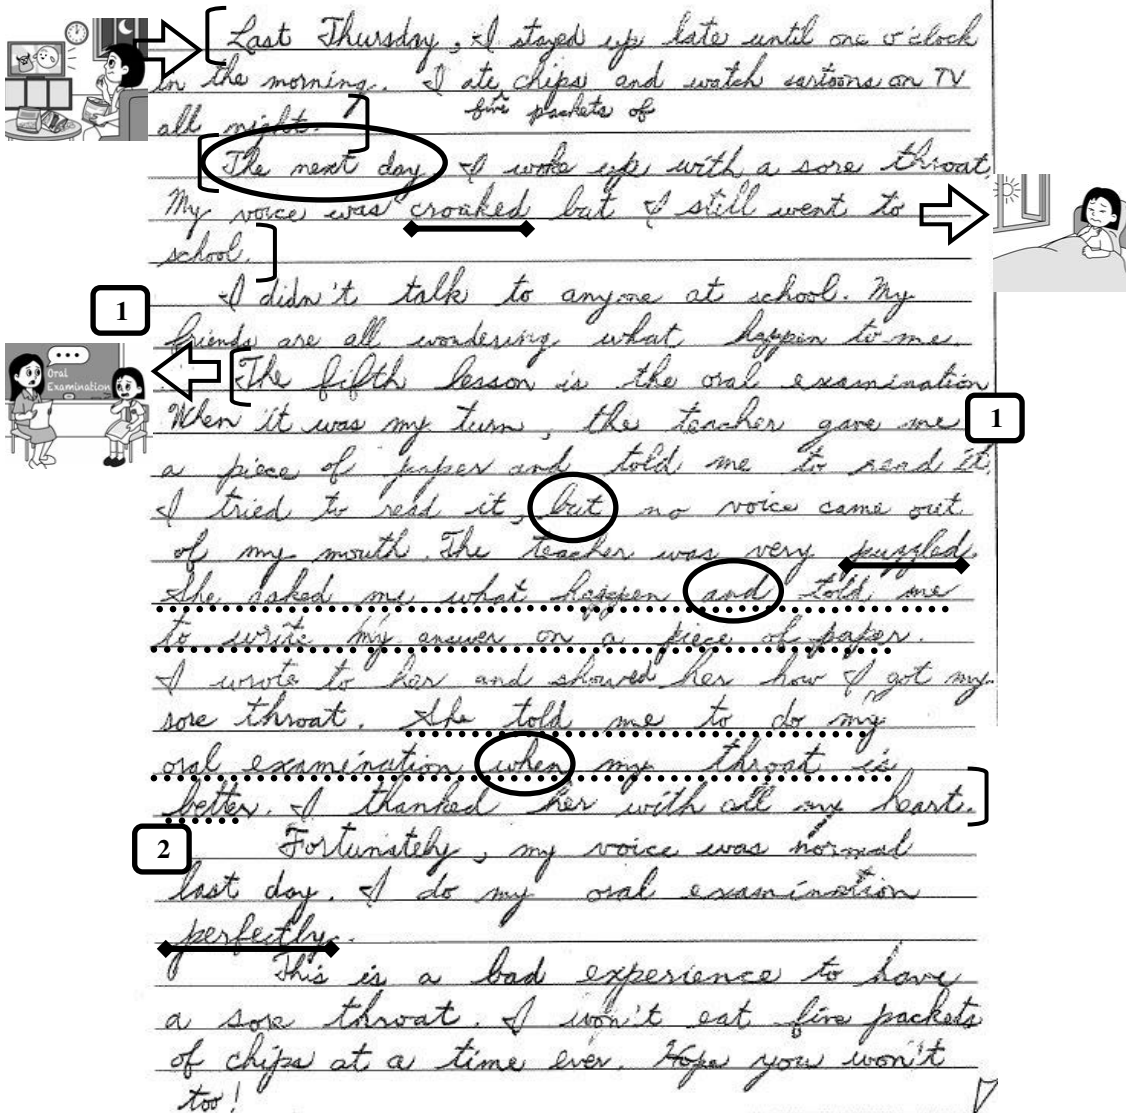 Last Thursday, I stayed up late until one o'clock
in the morning. I ate chips and watch cartoons on TV
five packets of
all night.
The next day I woke up with a sore throat.
My voice was croaked but I still went to
school.
1
I didn't talk to anyone at school. My
friends are all wondering what happen to me.
... Oral Examination
The fifth lesson is the oral examination
When it was my turn, the teacher gave me
1
a piece of paper and told me to read it.
I tried to read it, but no voice came out
of my mouth. The teacher was very puzzled.
She asked me what happen and told me
to write my answer on a piece of paper.
I wrote to her and showed her how I got my
sore throat. She told me to do my
oral examination when my throat is
better. I thanked her with all my heart.
2
Fortunately, my voice was normal
last day. I do my oral examination
perfectly.
This is a bad experience to have
a sore throat. I won't eat five packets
of chips at a time ever. Hope you won't
too!